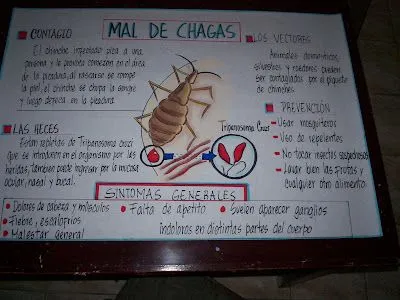 MAL DE CHAGAS
CONTAGIO
El chinche infectado pica a una
persona y la pronta comezon en el área
de la picadura, al rascarse se rompe
la piel, el chinche se chupa la sangre
y luego defeca en la picadura.
LAS HECES
Están repletas de Tripanosoma cruci
que se introducen en el organismo por las
heridas, tambien puede ingresar por la mucosa
ocular, nasal y bucal.
Tripanosoma Cruci
LOS VECTORES
Animales domesticos,
silvestres y roedores pueden
ser contagiados por el piquete
de chinches.
PREVENCIÓN
- Usar mosquiteros
- Uso de repelentes
- No tocar insectos sospechosos
- Lavar bien las frutas y
cualquier otro alimento.
SINTOMAS GENERALES
Dolores de cabeza y músculos
Fiebre, escalofrios
Malestar general
Falta de apetito
Suelen aparecer ganglios
indoloros en distintas partes del cuerpo